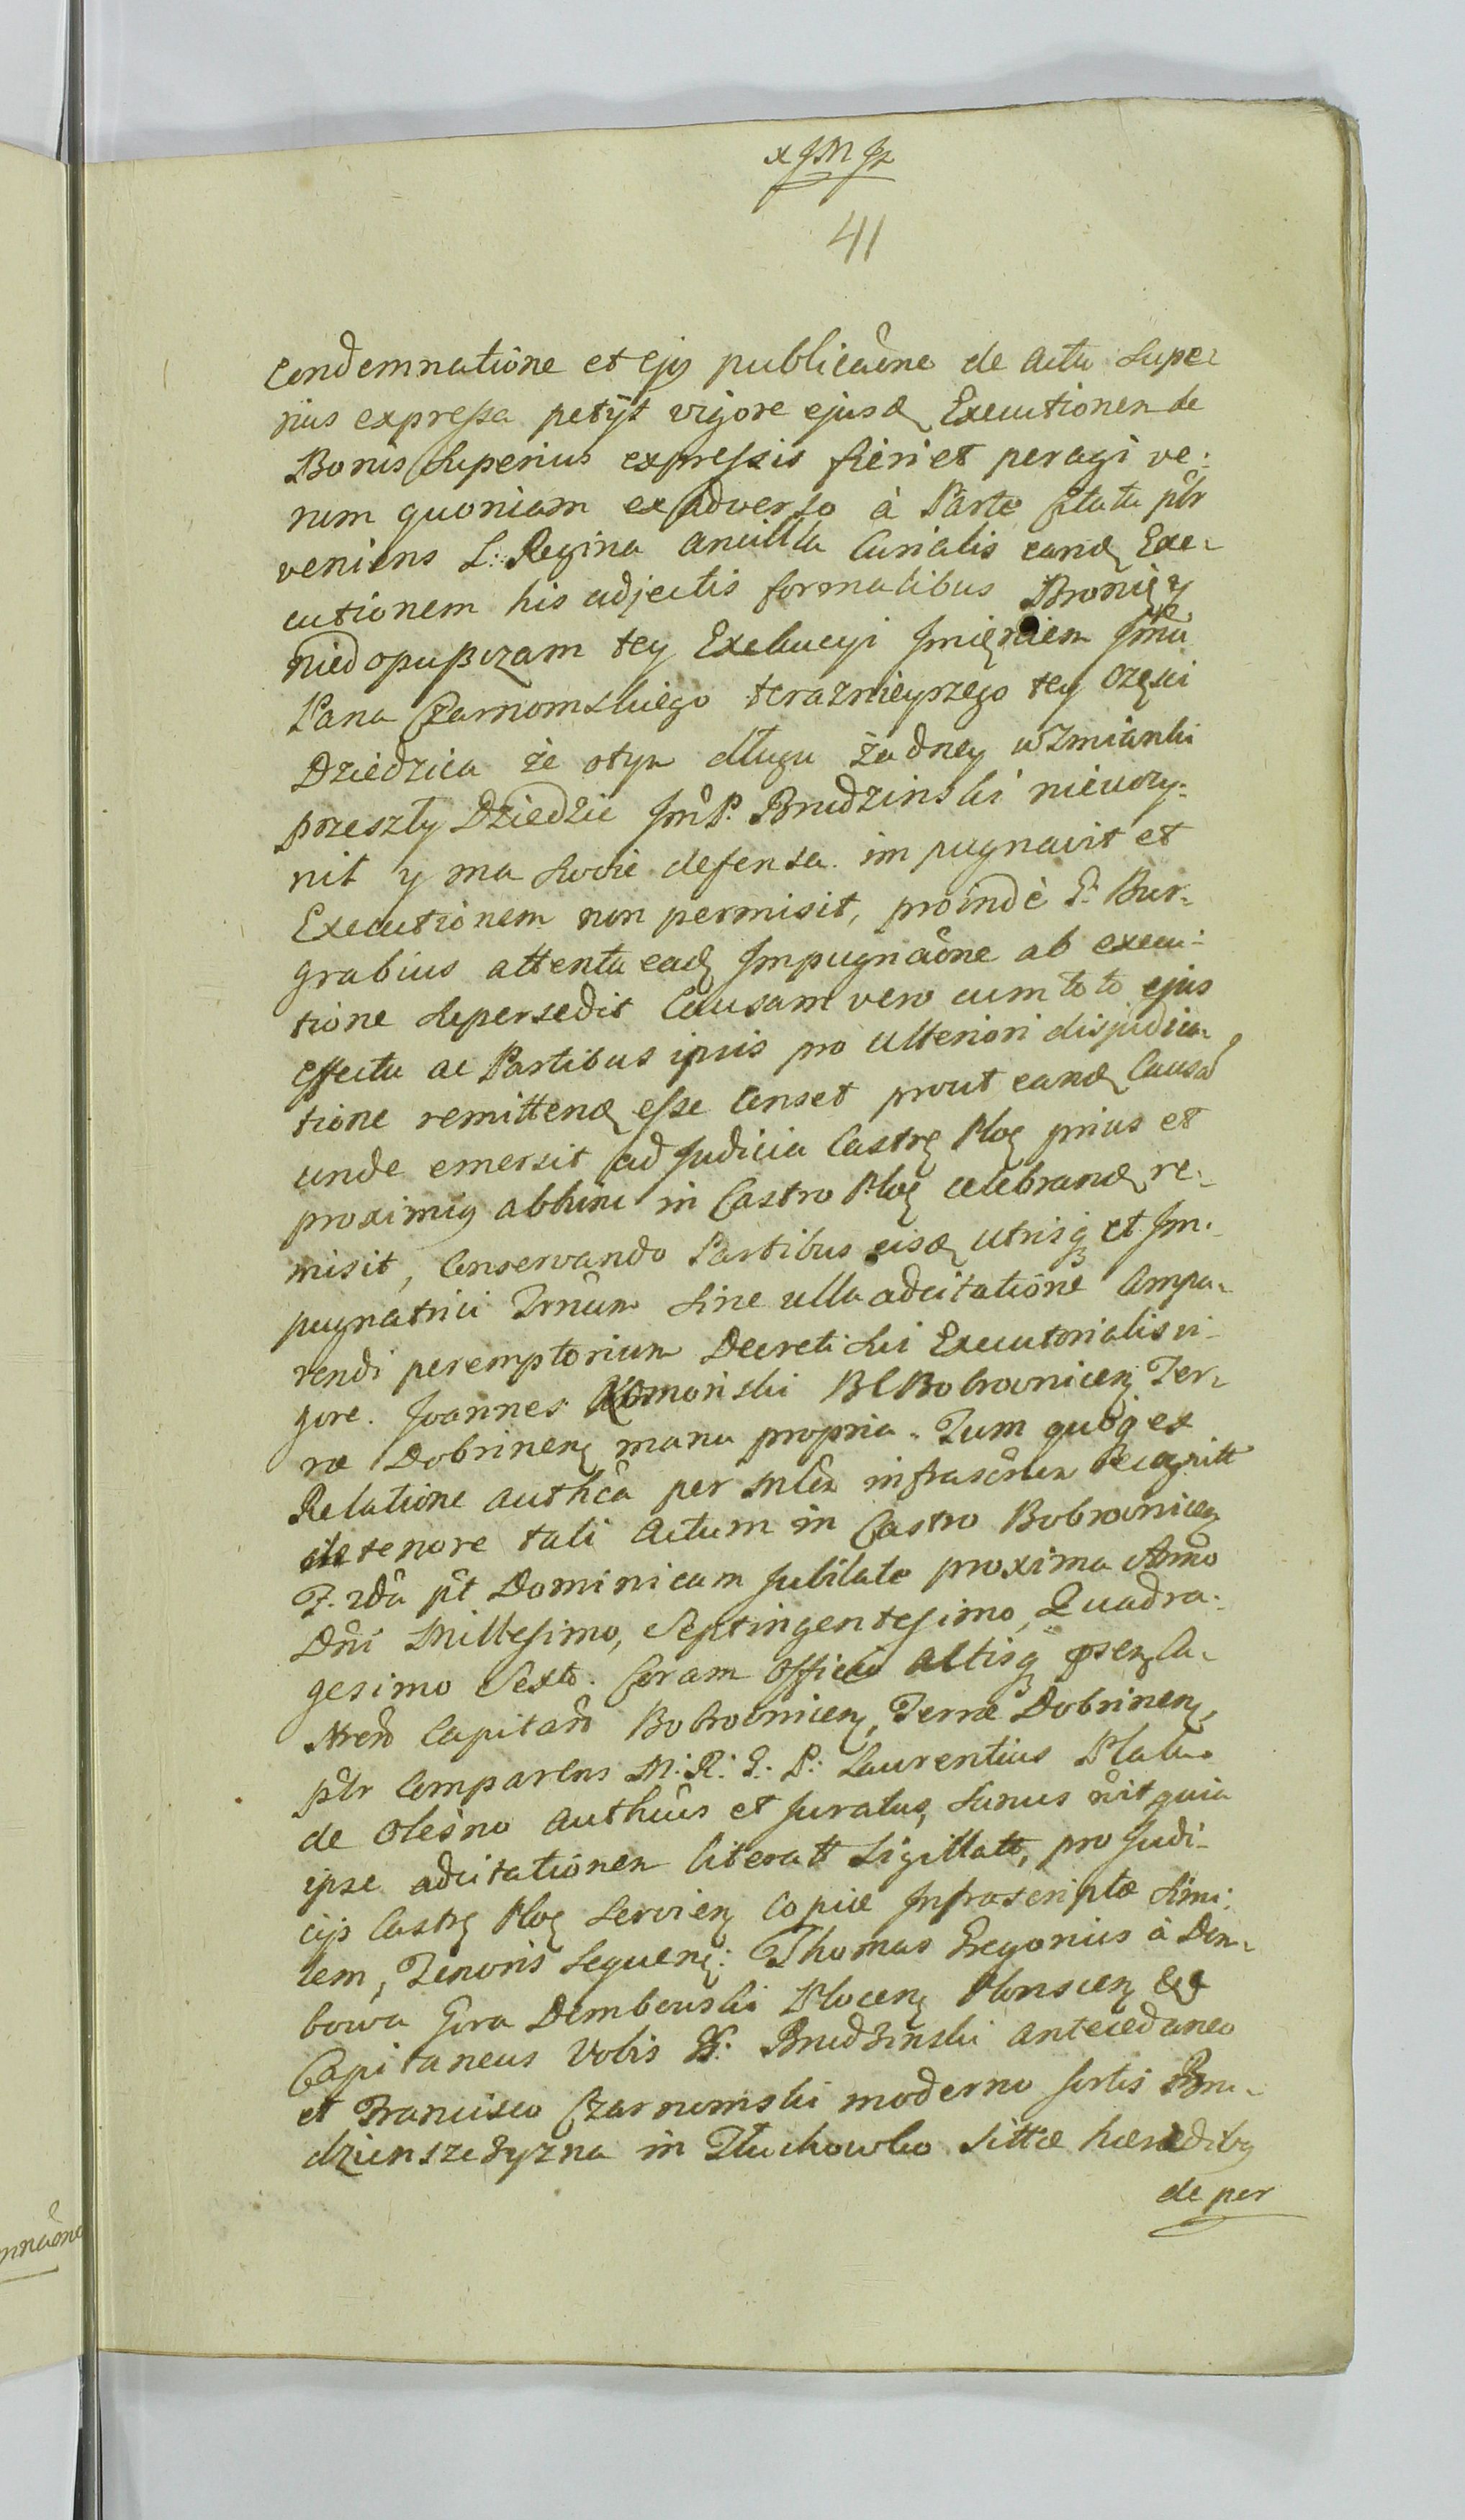 41
Condemnatione et ejꝰ publicãone de actu supe-
rius expressa petijt vigore ejusd Executionem de
Bonis Superius expressis fieri et peragi ve-
rum quoniam ex adverso à Parte Citata pltr
veniens L: Regina ancilla Curialis eand Exe-
cutionem his adjectis formalibus Bronię y
niedopuszczam tey Exekucyi Jmięniem Jmci
Pana Czarnomskiego teraznieyszego tey Częsci
Dziedzica że otym długu żadney wzmianki
przeszły Dziedzic JmP. Brudzinski nieuczy-
nił y ma Swoie defensa impugnavit et
Executionem non permisit, proindè G. Bur-
grabius attenta ead Impugnãone ab execu-
tione supersedit Causam vero cum toto ejus
effectu ac Partibus ipsis pro Ulteriori dijudica-
tione remittend esse Censet prout eand Causã
unde emersit ad Judicia Castr Ploc prius et
proximiꝰ abhinc in Castro Ploc celebrand re-
misit, Conservando Partibus eisd Utrisq et Im-
pugnatrici Trnũm Sine ulla adcitatione Compa-
rendi peremptorium Decreti Sui Executorialis vi-
gore. Joannes Komorski BC Bobrovnicen Ter-
ræ Dobrinen manu propria. Tum quoq ex
Relatione authca per infrascrm Recognitt
de tenore tali Actum in Castro Bobrovnicen
F. 2dâ pt Dominicam Jubilate proxima Anno
Dni Millesimo, Septingentesimo, Quadra-
gesimo Sexto. Coram Officio Actisq psen Ca-
stren Capitan Bobrovnicen, Terræ Dobrinen,
pltr Comparens M: R: G: P: Laurentius Platu
de Olesno authcus et Juratus, Sanus rñit quia
ipse adcitationem literatt Sigillatt, pro Judi-
cijs Castr Ploc Servien Copiæ Infrascriptæ Simi-
lem, Tenoris Sequen: Thomas Gregorius à Dem-
bowa Gora Dembowski Plocen Plonscen &
Capitaneus Vobis G: Brudzinski antecedaneo
et Francisco Czarnomski moderno sortis Bru-
dzienszczyzna in Tłuchowko Sittæ hæredibꝰ
de per
mnãone